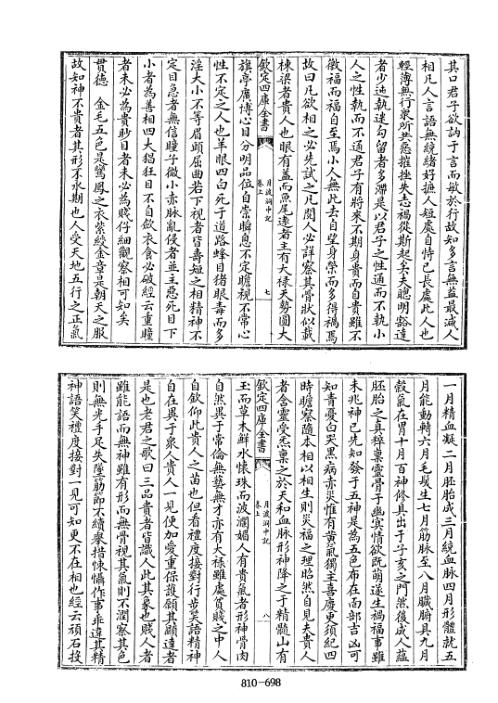 其口君子欲訥于言而敏於行故知多言無益最減人
相凡人言語無緒好摭人短處自恃已長處此人也
輕薄無行衆所共惡摧挫失志禍從斯起矣夫聰明豁達
者少迍執迷勾留者多滯是以君子之性通而不執小
人之性執而不通君子有將來不期身貴而自貴雖不
徵福而福自至焉小人無此去自望身榮而多得禍焉
故曰凡欲相之必先試之凡閱人必詳察其骨狀似載
棟梁者貴人也眼有盖而魚尾遠者主有大祿天勢圓大
欽定四庫全書
月波洞中記
卷上
七
旗亭廣博心目分明品位自崇瞻息不定瞻視不常心
性不定之人也羊眼四白死于道路蜂目猪眼毒而多
淫大小不等眉頭屈曲若下視者皆壽短之相精神不
定目急者無信瞳子微小赤脉亂侵者並主惡死目下
小者為善相四大猖狂目不自斂衣食必破經云重瞳
者未必為貴眇目者未必為賤仔細觀察相可知矣
貫德 金毛五色是鸞鳳之衣紫綬金章是朝天之服
故知神不貴者其形不永期也人受天地五行之正氣
一月精血凝二月胚胎成三月繞血脉四月形體就五
月能動轉六月毛髮生七月筋脉至八月臟腑具九月
榖氣在胃十月百神修具出于子亥之門然後成人蘊
胚胎之真粹禀靈骨于幽冥情欲既萌遂生禍福事雖
未兆神已先知發于五神是為五色布在面部吉凶可
知青憂白哭黑病赤災惟有黄氣獨主喜慶更須紀四
時瞻察隨本相以相生則災福之理昭然自見夫貴人
者含靈受炁禀之於天和血脉形神降之于精髓山有
欽定四庫全書
月波洞中記
卷上
八
玉而草木鮮水懷珠而波瀾媚人有貴氣者形神骨肉
自然異于常倫無藝無才亦有大祿雖處貧賤之中人
自欽仰此貴人之苗也但看禮度接對行步笑語精神
自在異于衆人貴人一見便加愛重保護願其顯達者
是也老君之歌曰三品貴者皆識人此其象也賤人者
雖能語而無神雖有形而無骨視其氣則不潤察其色
則無光手足失墜筋節不續舉措悚懾作事乖違其精
神語笑禮度接對一見可知更不在相也經云頑石投
810-698